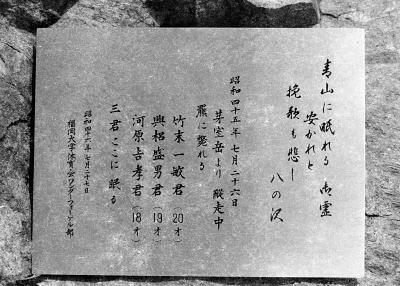 青山に眠れる御霊
安かれと
挽歌も悲し
八の沢
昭和四十五年七月二十六日
芽室岳より縦走中
羆に斃れる
竹末一敏君（20才）
興梠盛男君（19才）
河原吉孝君（18才）
三君ここに眠る
昭和四十六年七月二十七日
福岡大学体育会ワンダーフォーゲル部